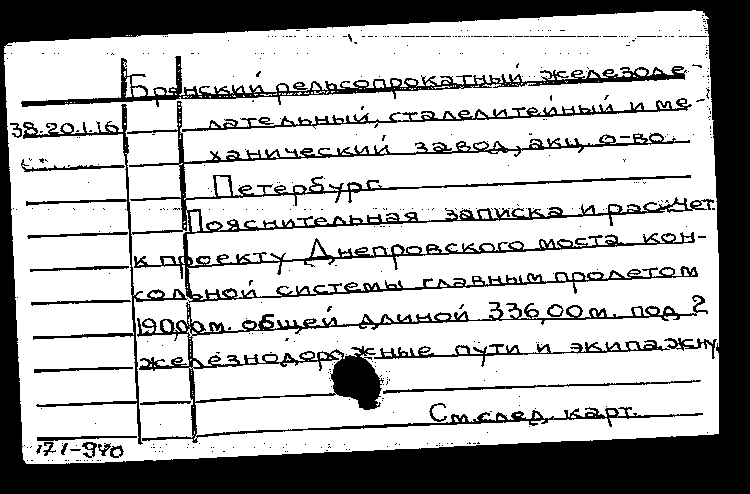 Брянский рельсопрокатный железоде-
38.20.1.16 лательный, сталелитейный и ме-
ханический завод, акц. о-во.
Петербург.
Пояснительная записка и расчет
к проекту Днепровского моста кон-
сольной системы главным пролетом
190,00м. общей длиной 336,00м. под 2
железнодорожные пути и экипажну
См. след. карт.
171-940